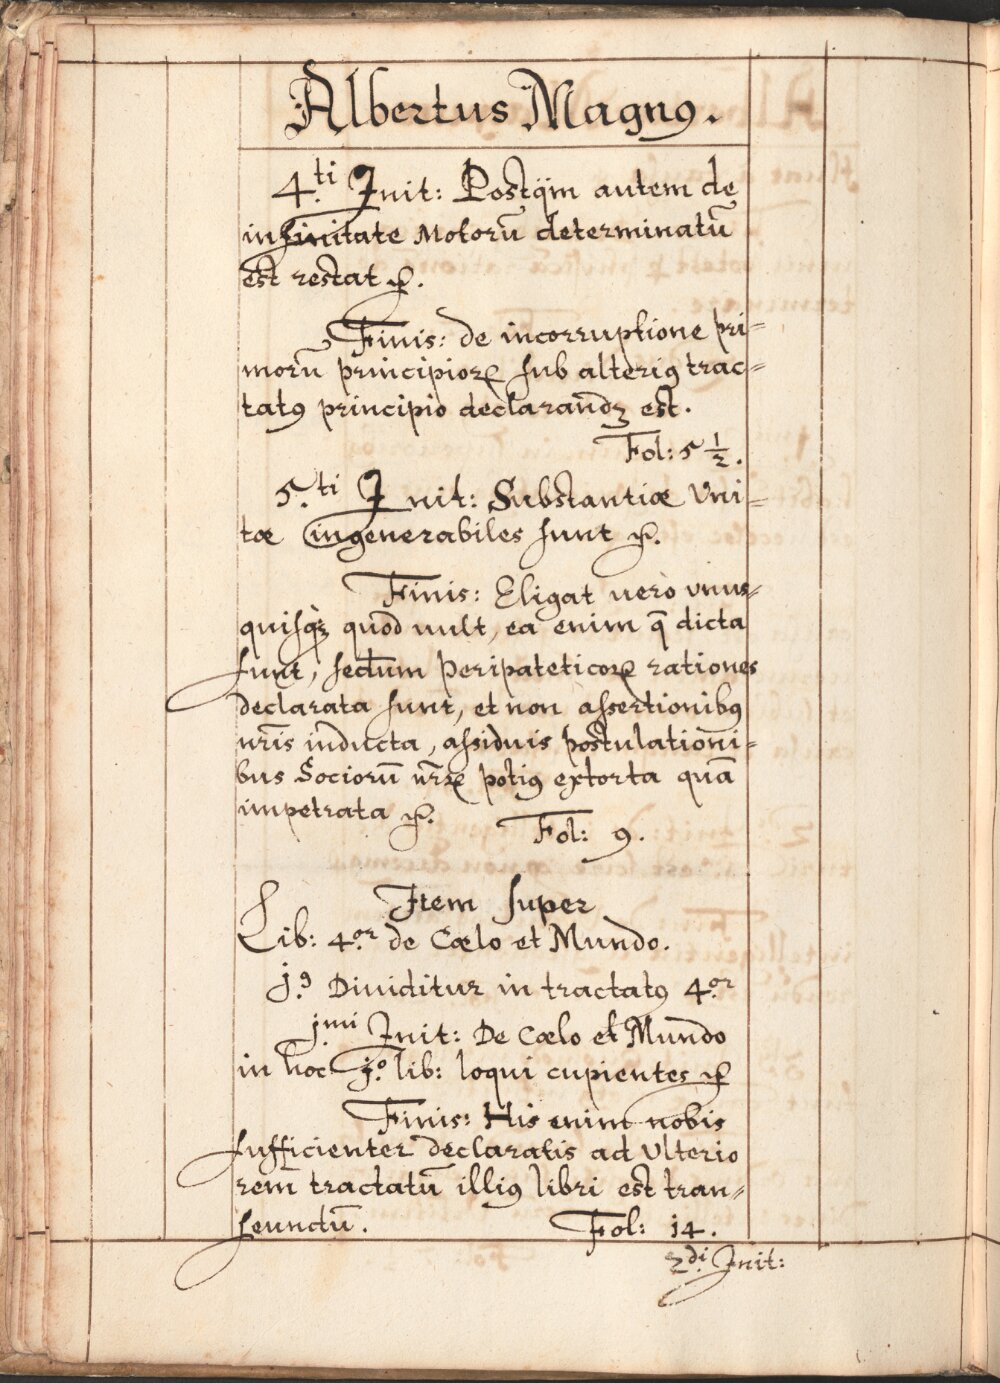 Albertus Magnꝰ.
4.ti Init: Postq̃m autem de
infinitate Motorũ determinatũ
est restat ꝛc.
Finis: de incorruptione pri=
morũ principioꝝ sub alteriꝰ trac=
tatꝰ principio declarandꝫ est.
Fol: 5 1/2.
5.ti Init: Substantiæ Vni=
tæ ingenerabiles sunt ꝛc.
Finis: Eligat uerò vnus=
quisqꝫ quod uult, ea enim q̃ dicta
sunt, sectum peripateticoꝝ rationes
declarata sunt, et non assertionibꝰ
nr̃is inducta, assiduis postulationi=
bus Sociorũ nr̃oꝝ potiꝰ extorta quã
impetrata ꝛc.
Fol: 9.
Item super
Lib: 4.or de Cælo et Mundo.
j.ꝰ Diuiditur in tractatꝰ 4.or
jmi Init: De Cælo et Mundo
in hoc j.o lib: loqui cupientes ꝛc
Finis: His enim nobis
sufficienter declaratis ad Vlterio
rem tractatũ illiꝰ libri est tran=
seundũ.
Fol: 14.
2di Init: